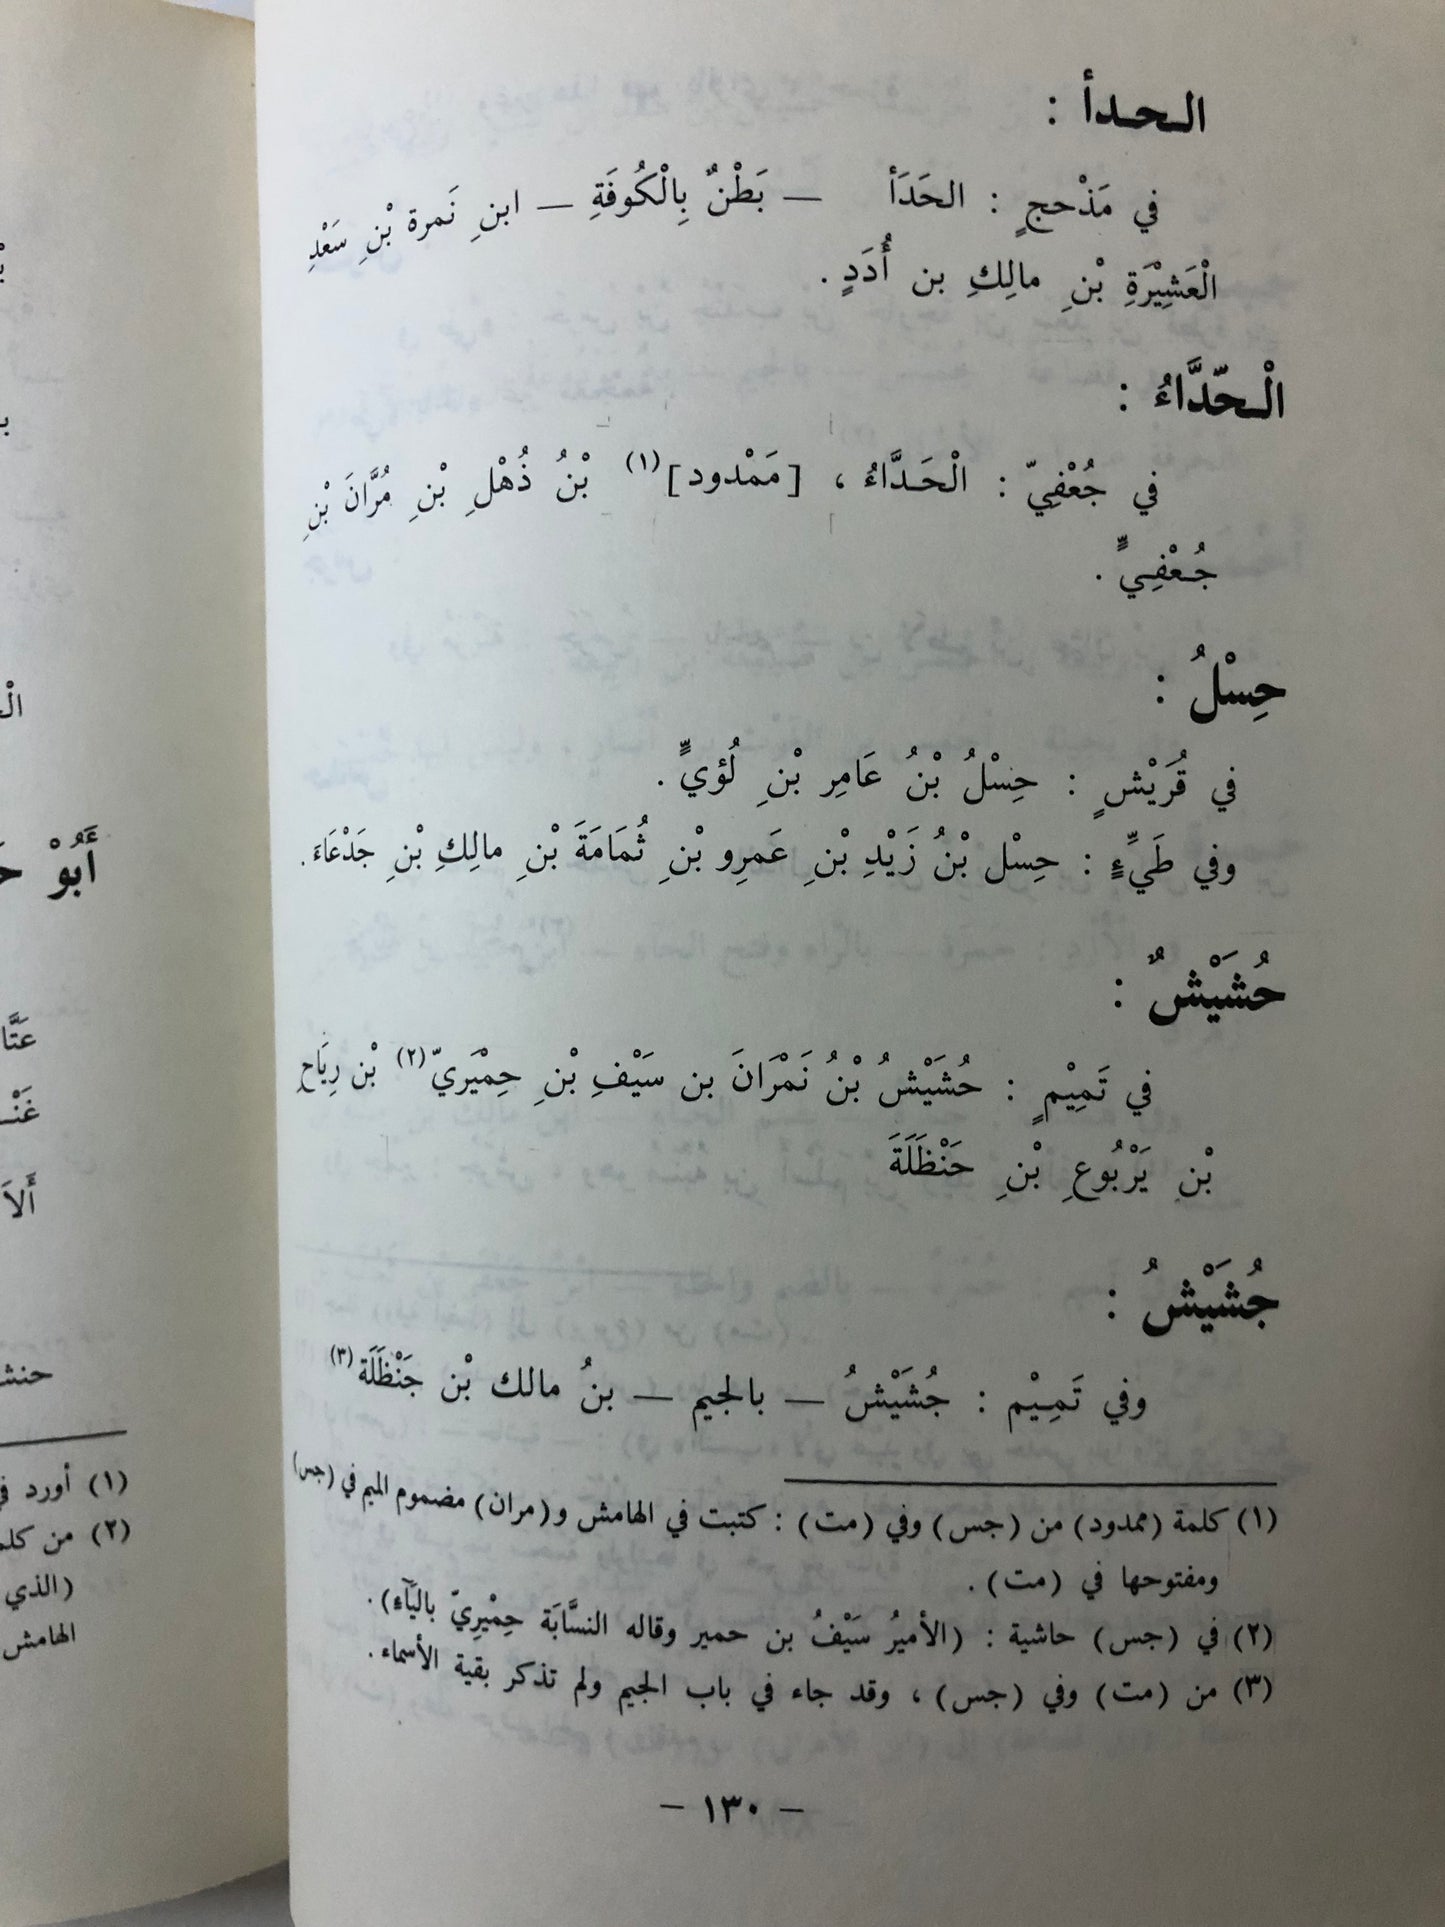 الـحـدأ :
في مَذْحجٍ : الحَدَأ — بَطْنٌ بِالْكُوفَةِ — ابنِ نَمرة بْنِ سَعْدِ
الْعَشِيْرَةِ بْنِ مالِكِ بن أُدَدٍ .
الْـحّدَّاءُ :
في جُعْفِيّ : الْحَـدَّاءُ ، [مَمْدود](١) بْنُ ذُهْلِ بْنِ مُرَّانَ بْنِ
جُـعْفِـيٍّ .
حِسْلُ :
في قُرَيْشٍ : حِسْلُ بْنُ عَامِرِ بْنِ لُؤيٍّ .
وفي طَيِّءٍ : حِسْل بْنُ زَيْدِ بْنِ عَمرِو بْنِ ثُمَامَةَ بْنِ مالِكِ بْنِ جَدْعَاءَ .
حُشَيْشٌ :
في تَمِيْمٍ : حُشَيْشُ بْنُ نَمْرَانَ بن سَيْفِ بْنِ حِمْيَريّ(٢) بْن رِيَاحِ
بْنِ يَرْبُوعِ بْنِ حَنْظَلَةَ
جُشَيْشُ :
وفي تَمِـيْم : جُشَيْشُ — بالجيم — بنُ مالك بْن جَنْظَلَة(٣)
(١) كلمة (ممدود) من (جس) وفي (مت) : كتبت في الهامش و(مران) مضموم الميم في (جس)
ومفتوحها في (مت) .
(٢) في (جس) حاشية : (الأميرُ سَيْفُ بن حمير وقاله النسَّابَة حِمْيِريّ باليَآء).
(٣) من (مت) وفي (جس) ، وقد جاء في باب الجيم ولم تذكر بقية الأسماء .
– ١٣٠ –
أَبُوْ
أَلاَ
(١) أورد
(٢) من
(الذي
الهامش